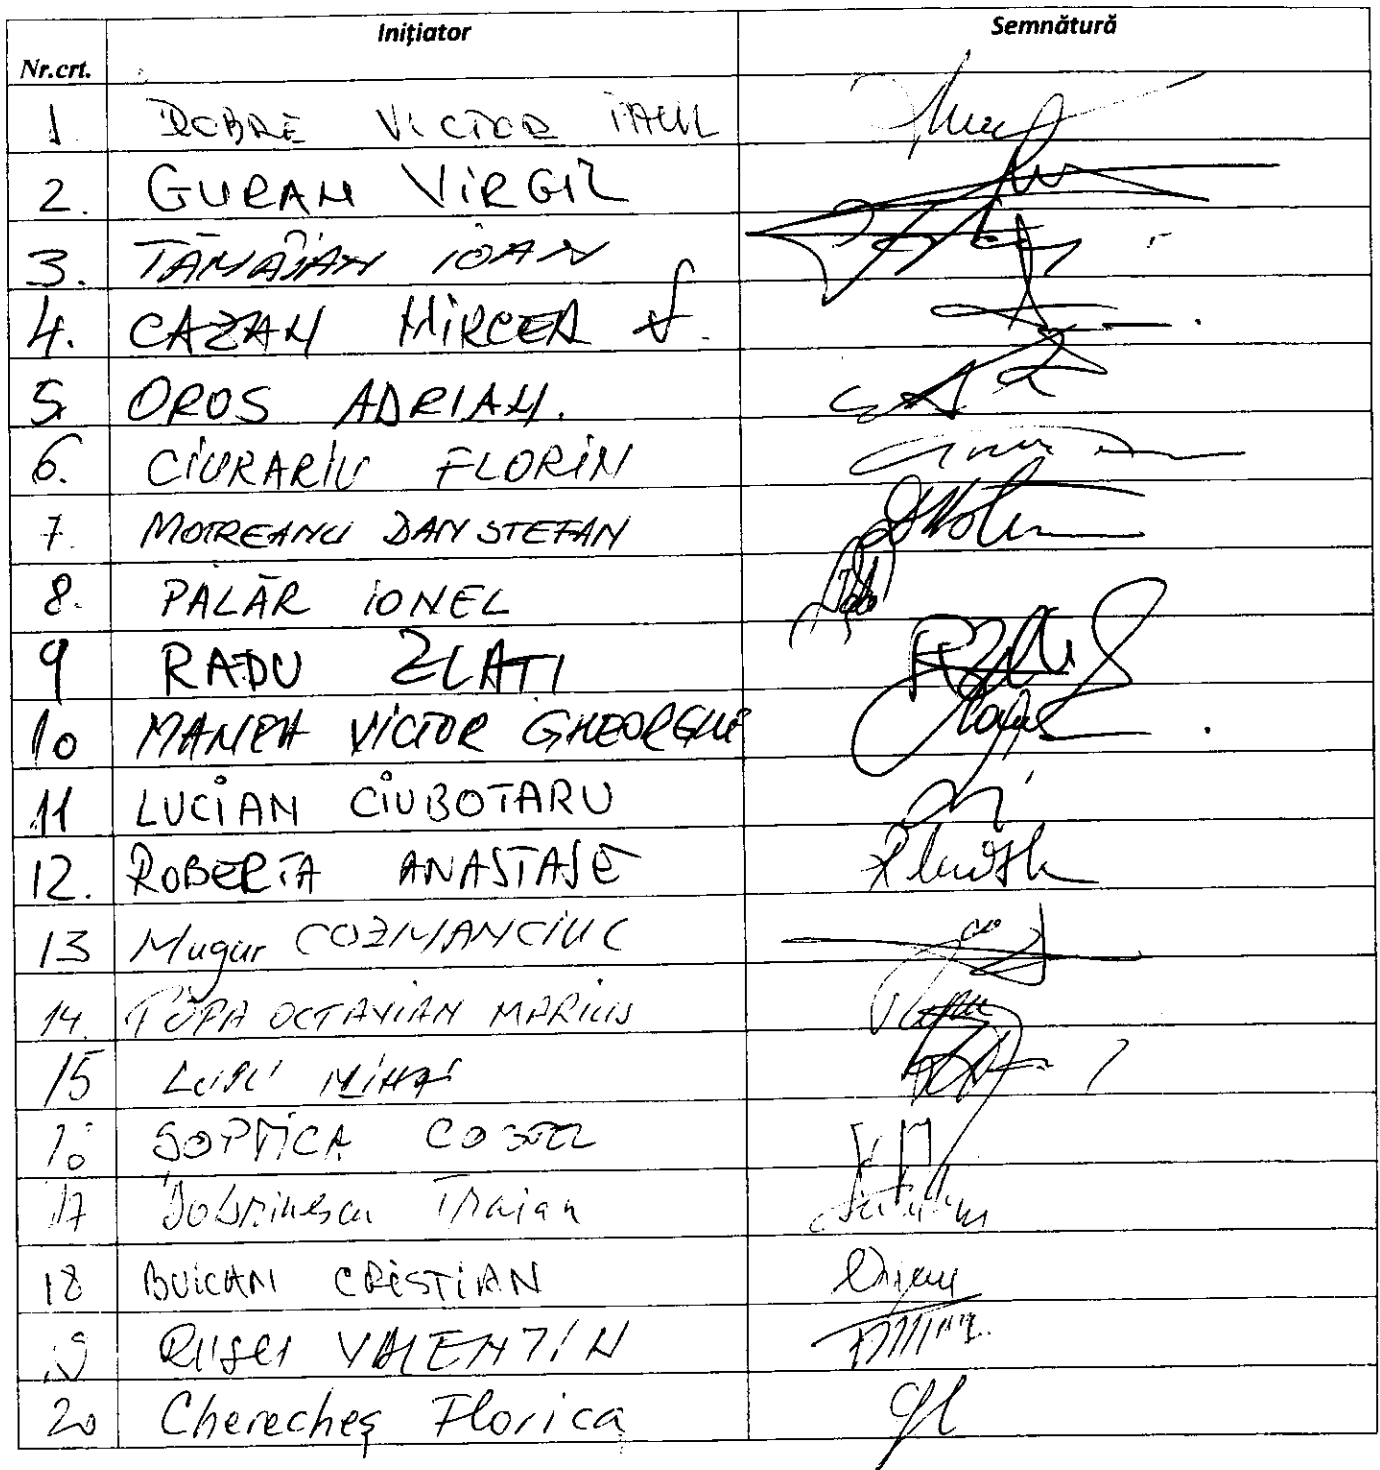 Inițiator Semnătură
Nr.crt.
1. DOBRE VICTOR PAUL
2. GURAN VIRGIL
3. TĂMÂIAN IOAN
4. CAZAN MIRCEA
5. OROS ADRIAN.
6. CIURARIU FLORIN
7. MOTREANU DAN STEFAN
8. PALĂR IONEL
9 RADU ZLATI
10 MANEA VICTOR GHEORGHE
11 LUCIAN CIUBOTARU
12. ROBERTA ANASTASE
13 Mugur COZMANCIUC
14. POPA OCTAVIAN MARIUS
15 LUPU MIHAI
16 ȘOPTICĂ COSTEL
17 Dobrinescu Traian
18 BUICAN CRISTIAN
19 RUSU VALENTIN
20 Cherecheș Florica